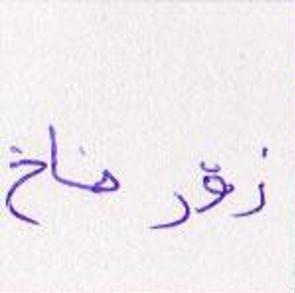 زۆر ضاخ